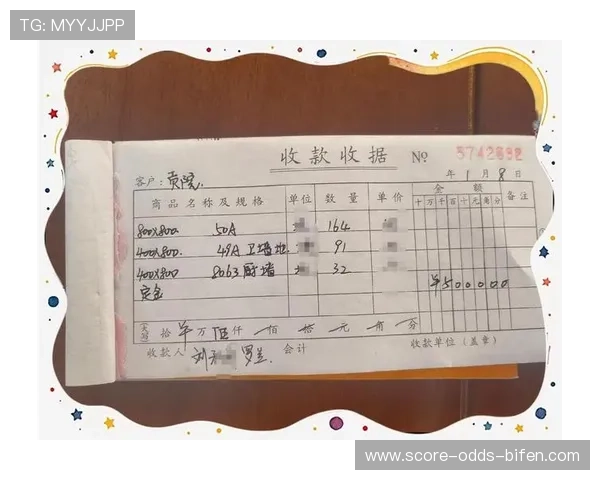 TG: MYYJJPP
收款收据 № 5742692
年 1 月 8 日
客户: 贡院
商品名称及规格 单位 数量 单价 金额 备注
十万千百十元角分
800X800 50A 164
400X800. 49A 卫墙地 91
400X800 8063 厨墙 32
定金 ¥500000
实写 拾 ¥ 万 伍 仟 佰 拾 元 角 分
收款人 刘 罗兰 会计 收款单位(盖章)
www.score-odds-bifen.com